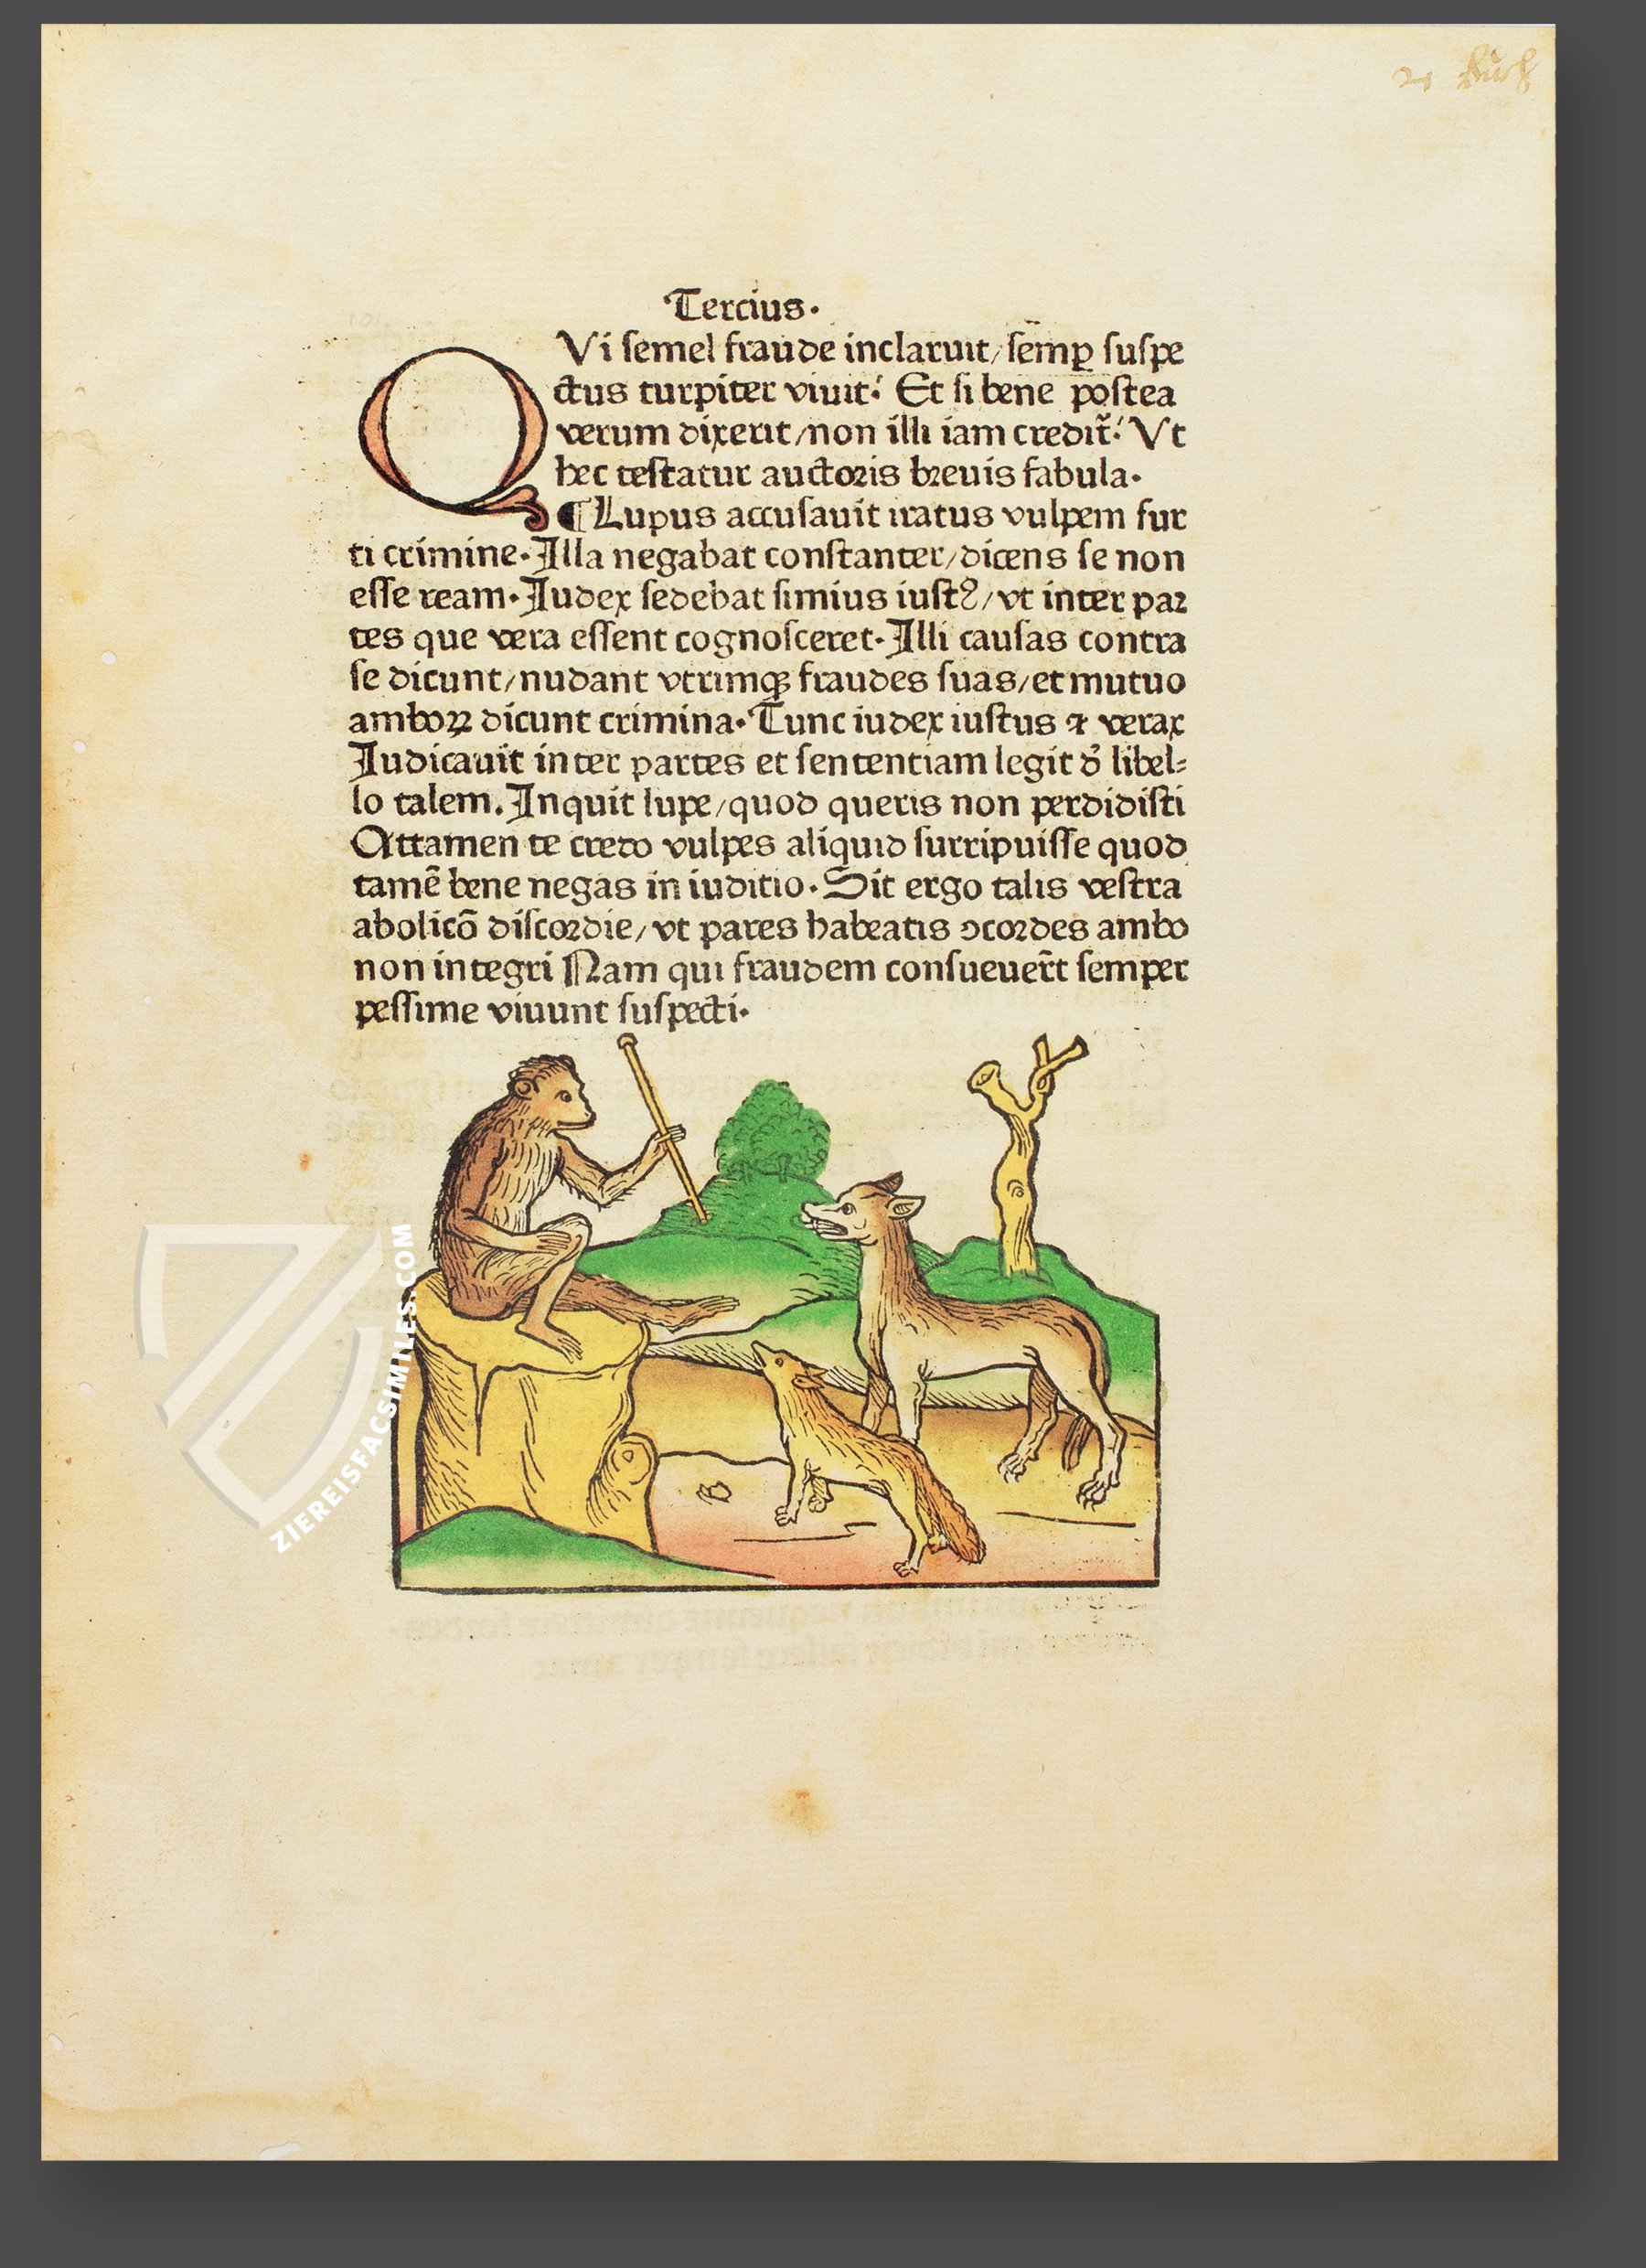 Tercius.
QVi semel fraude inclaruit/ semꝑ suspe
ctus turpiter viuit: Et si bene postea
verum dixerit/non illi iam credit̃: Vt
hec testatur auctoris breuis fabula.
¶Lupus accusauit iratus vulpem fur
ti crimine. Illa negabat constanter/dicens se non
esse ream. Iudex sedebat simius iustꝰ/vt inter par
tes que vera essent cognosceret. Illi causas contra
se dicunt/nudant vtrimqꝫ fraudes suas/et mutuo
amboꝝ dicunt crimina. Tunc iudex iustus ⁊ verax
Iudicauit inter partes et sententiam legit d̓ libel⸗
lo talem. Inquit lupe/quod queris non perdidisti
Attamen te credo vulpes aliquid surripuisse quod
tamē bene negas in iuditio. Sit ergo talis vestra
abolicō discordie/vt pares habeatis ↄcordes ambo
non integri Nam qui fraudem consueuer̃t semper
pessime viuunt suspecti.
ZIEREISFACSIMILES.COM